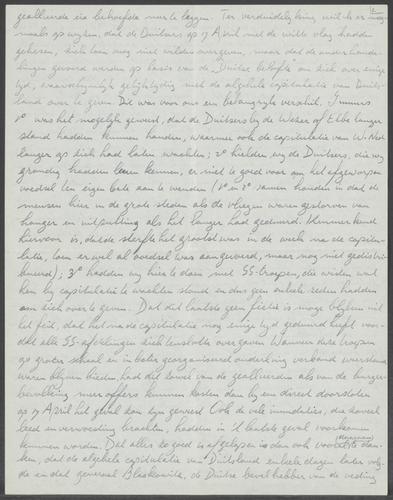 2
geallieerde zie behoefde neer te leggen. Ter verduidelijking wil ik er nog
maals op wijzen, dat de Duitsers op 17 April met de witte vlag hadden
geheven, zich toen nog niet wilden overgeven, maar dat de onderhande-
lingen gevoerd werden op basis van de "Duitse belofte" om zich over enige
tijd, waarschijnlijk gelijktijdig met de algehele capitulatie van Duits-
land over te geven. Dit was voor ons een belangrijk verschil. Immers
1° was het mogelijk geweest, dat de Duitsers bij de Weser of Elbe langer
stand hadden kunnen houden, waarmee ook de capitulatie van W. Ned.
langer op zich had laten wachten; 2° hielden wij de Duitsers, die wij
grondig hadden leren kennen, er niet te goed voor om het afgeworpen
voedsel ten eigen bate aan te wenden (1° en 2° samen hadden in dat de
mensen hier in de grote steden als de vliegen waren gestorven van
honger en uitputting als het langer had geduurd. Kenmerkend
hiervoor is, dat de sterfte het grootst was in de week na de capitu-
latie, toen er wel al voedsel was aangevoerd, maar nog niet gedistri-
bueerd); 3° hadden wij hier te doen met SS-troepen, die wisten wat
hen bij capitulatie te wachten stond en dus geen enkele reden hadden
om zich over te geven. Dat dit laatste geen fictie is moge blijken uit
het feit, dat het na de capitulatie nog enige tijd geduurd heeft voor-
dat alle SS-afdelingen zich tenslotte overgaven. Wanneer deze troepen
op grote schaal en in beter georganiseerd onderling verband weerstand
waren blijven bieden had dit zowel van de geallieerden als van de burger-
bevolking meer offers kunnen kosten dan bij een direct doorstoten
op 17 April het geval kon zijn geweest. Ook de vele inundaties, die zoveel
leed en verwoesting brachten, hadden in 't laatste geval voorkomen
kunnen worden. Dat alles zo goed is afgelopen is dan ook voor te dan-
ken, dat de algehele capitulatie van Duitsland enkele dagen later volg-
de en dat generaal Blaskowitz, de Duitse bevelhebber van de vesting